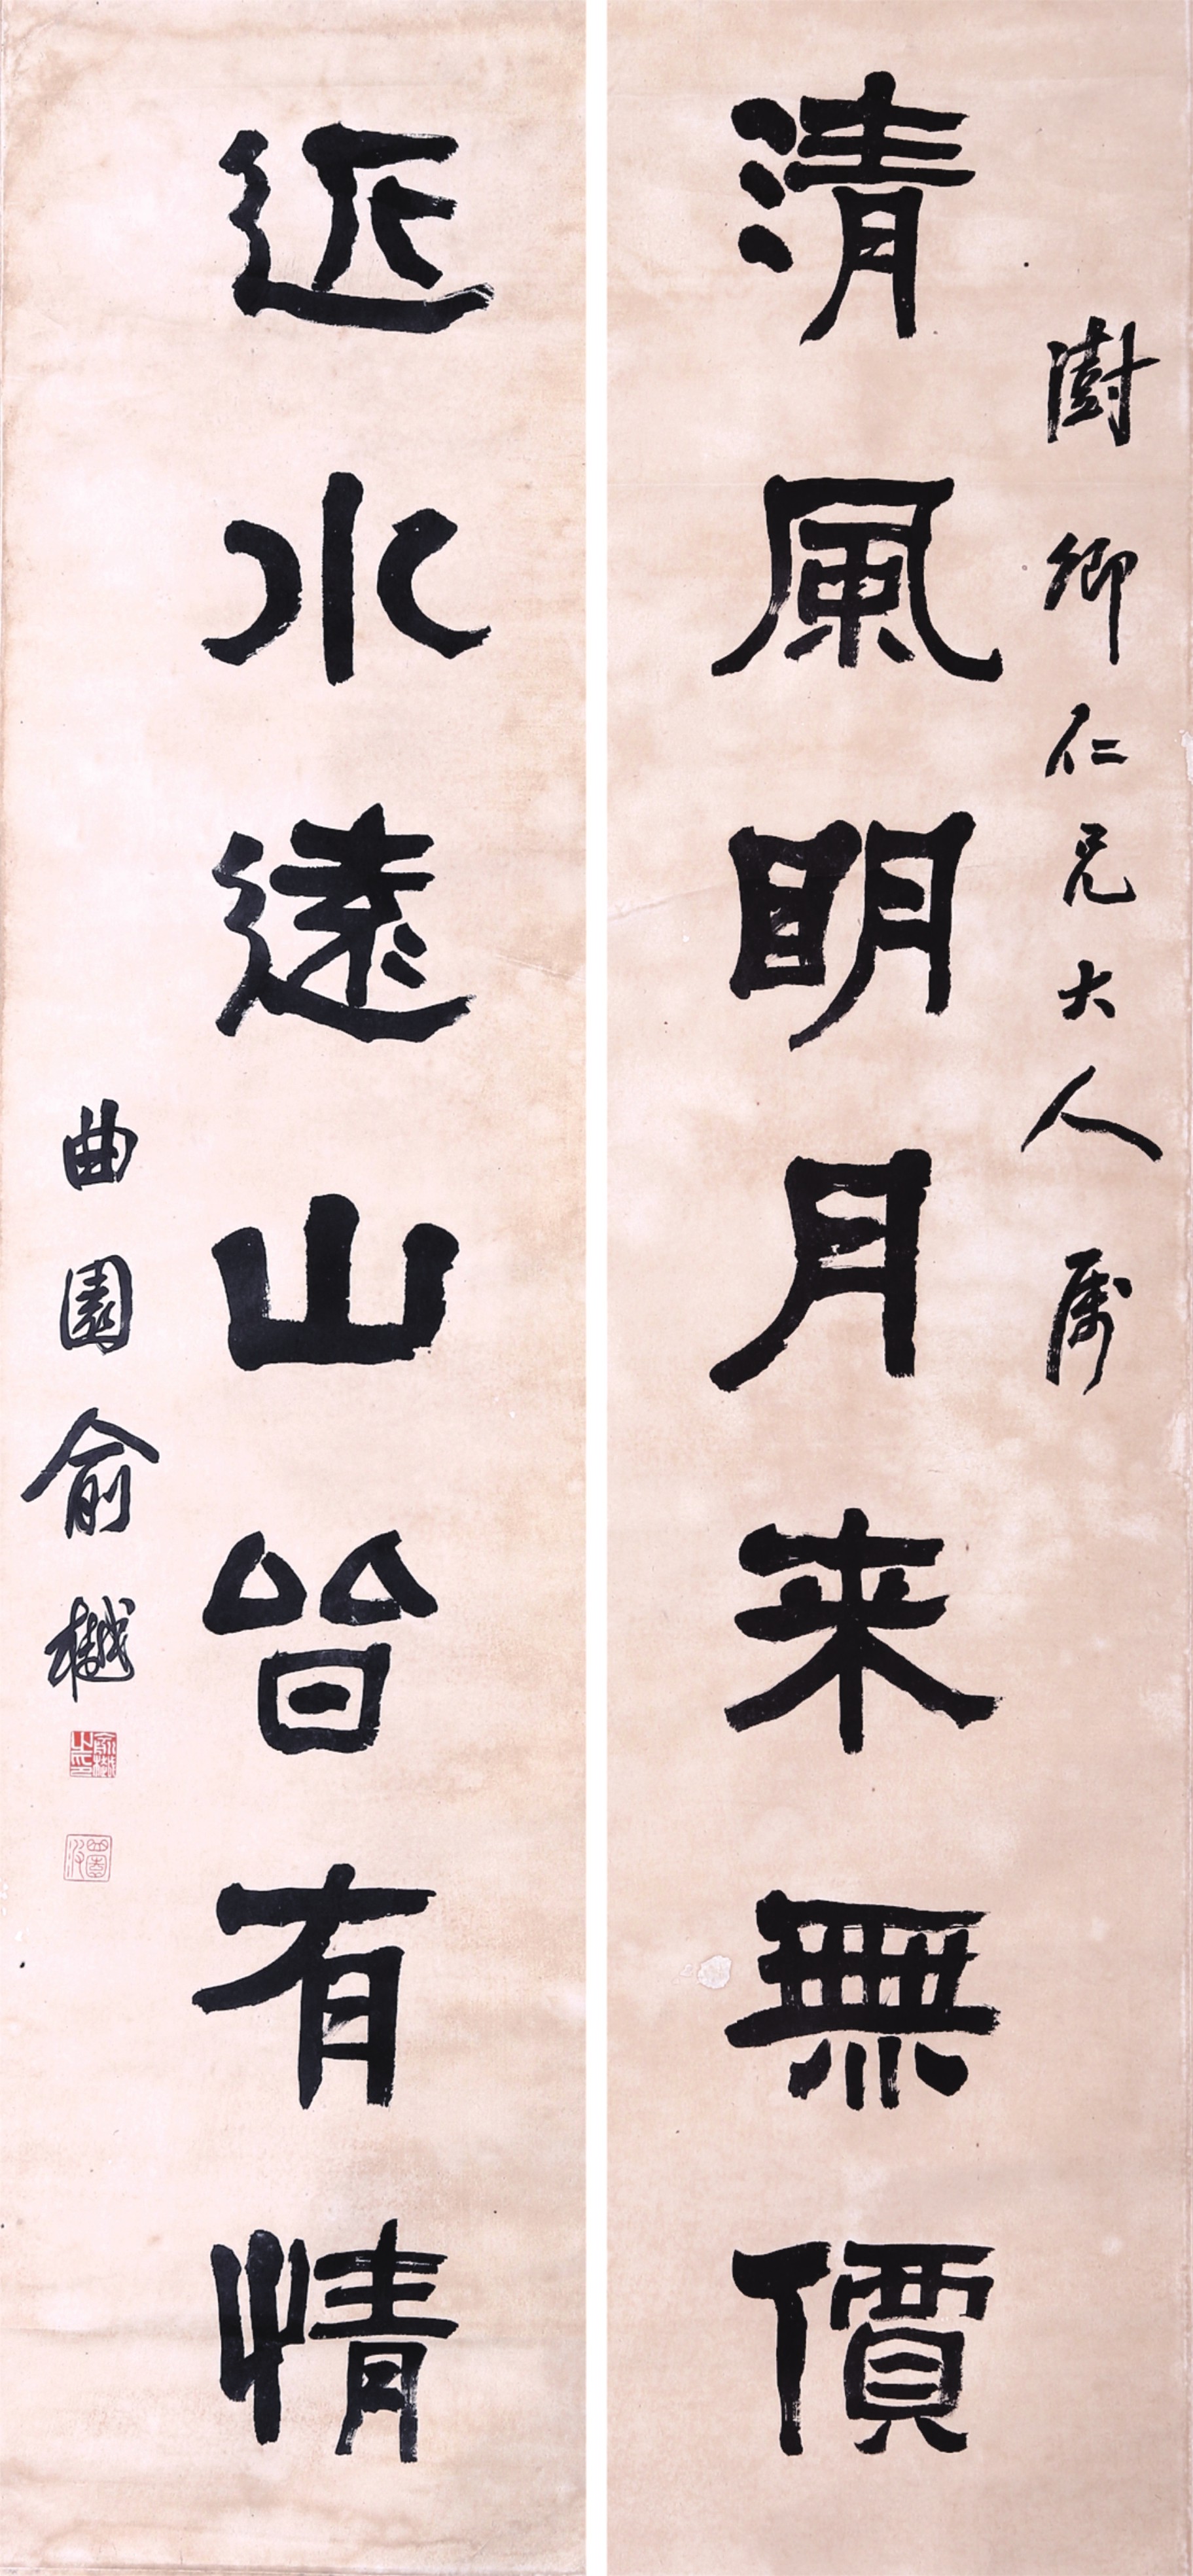 澍卿仁兄大人属
清風明月来無價
近水遠山皆有情
曲園俞樾